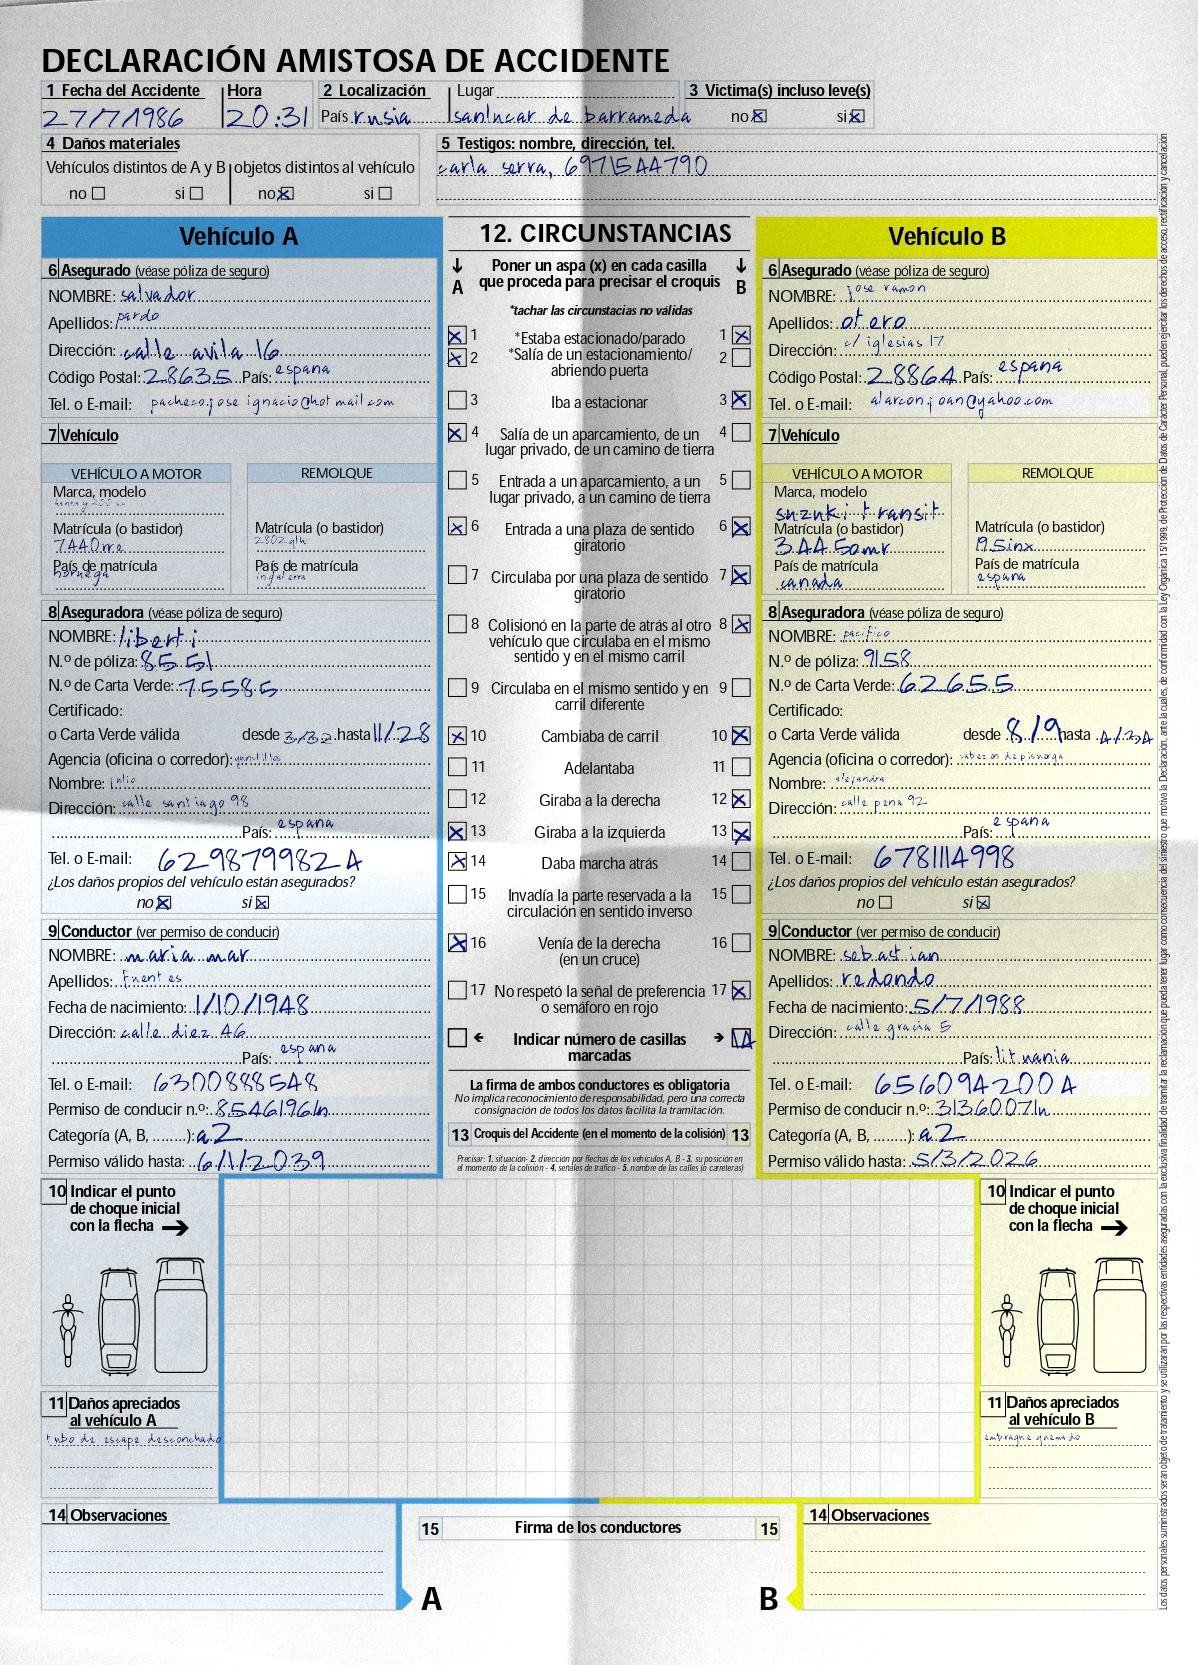 DECLARACIÓN AMISTOSA DE ACCIDENTE
1 Fecha del Accidente Hora 2 Localización Lugar 3 Victima(s) incluso leve(s)
27/7/1986 20:31 País rusia sanlucar de barrameda no si
4 Daños materiales 5 Testigos: nombre, dirección, tel.
Vehículos distintos de A y B objetos distintos al vehículo carla serra, 6971544790
no si no si
Vehículo A
6 Asegurado (véase póliza de seguro)
NOMBRE: salvador
Apellidos: pardo
Dirección: calle avila 16
Código Postal: 28635 País: espana
Tel. o E-mail: pacheco.jose ignacio@hotmail.com
7 Vehículo
VEHÍCULO A MOTOR REMOLQUE
Marca, modelo
Matrícula (o bastidor) Matrícula (o bastidor)
7440mra 2802glh
País de matrícula País de matrícula
noruega inglaterra
8 Aseguradora (véase póliza de seguro)
NOMBRE: liberti
N.º de póliza: 8551
N.º de Carta Verde: 75585
Certificado:
o Carta Verde válida desde 3/32 hasta 11/28
Agencia (oficina o corredor):
Nombre: julio
Dirección: calle santiago 98
País: espana
Tel. o E-mail: 6298799824
¿Los daños propios del vehículo están asegurados?
no si
9 Conductor (ver permiso de conducir)
NOMBRE: maria mar
Apellidos: fuentes
Fecha de nacimiento: 1/10/1948
Dirección: calle diez 46
País: espana
Tel. o E-mail: 6300888548
Permiso de conducir n.º: 8546196ln
Categoría (A, B, ........): a2
Permiso válido hasta: 6/1/2039
12. CIRCUNSTANCIAS
A Poner un aspa (x) en cada casilla que proceda para precisar el croquis B
*tachar las circunstacias no válidas
1 *Estaba estacionado/parado 1
2 *Salía de un estacionamiento/ 2
abriendo puerta
3 Iba a estacionar 3
4 Salía de un aparcamiento, de un 4
lugar privado, de un camino de tierra
5 Entrada a un aparcamiento, a un 5
lugar privado, a un camino de tierra
6 Entrada a una plaza de sentido 6
giratorio
7 Circulaba por una plaza de sentido 7
giratorio
8 Colisionó en la parte de atrás al otro 8
vehículo que circulaba en el mismo
sentido y en el mismo carril
9 Circulaba en el mismo sentido y en 9
carril diferente
10 Cambiaba de carril 10
11 Adelantaba 11
12 Giraba a la derecha 12
13 Giraba a la izquierda 13
14 Daba marcha atrás 14
15 Invadía la parte reservada a la 15
circulación en sentido inverso
16 Venía de la derecha 16
(en un cruce)
17 No respetó la señal de preferencia 17
o semáforo en rojo
Indicar número de casillas 14
marcadas
La firma de ambos conductores es obligatoria
No implica reconocimiento de responsabilidad, pero una correcta
consignación de todos los datos facilita la tramitación.
13 Croquis del Accidente (en el momento de la colisión) 13
Precisar: 1. situación- 2. dirección por flechas de los vehículos A, B - 3. su posición en
el momento de la colisión - 4. señales de tráfico - 5. nombre de las calles (o carreteras)
Vehículo B
6 Asegurado (véase póliza de seguro)
NOMBRE: jose ramon
Apellidos: otero
Dirección: c/ iglesias 17
Código Postal: 28864 País: espana
Tel. o E-mail: alarcon.joan@yahoo.com
7 Vehículo
VEHÍCULO A MOTOR REMOLQUE
Marca, modelo
suzuki transit
Matrícula (o bastidor) Matrícula (o bastidor)
3445omr 195inx
País de matrícula País de matrícula
canada espana
8 Aseguradora (véase póliza de seguro)
NOMBRE: pacifico
N.º de póliza: 9158
N.º de Carta Verde: 62655
Certificado:
o Carta Verde válida desde 8/9 hasta 4/34
Agencia (oficina o corredor): cabezon de pisuerga
Nombre: alejandra
Dirección: calle pena 92
País: espana
Tel. o E-mail: 6781114998
¿Los daños propios del vehículo están asegurados?
no si
9 Conductor (ver permiso de conducir)
NOMBRE: sebastian
Apellidos: redondo
Fecha de nacimiento: 5/7/1988
Dirección: calle gracia 5
País: lituania
Tel. o E-mail: 6560942004
Permiso de conducir n.º: 3136007ln
Categoría (A, B, ........): a2
Permiso válido hasta: 5/3/2026
10 Indicar el punto
de choque inicial
con la flecha
11 Daños apreciados
al vehículo A
tubo de escape desconchado
10 Indicar el punto
de choque inicial
con la flecha
11 Daños apreciados
al vehículo B
embrague quemado
14 Observaciones
15 Firma de los conductores 15
A B
14 Observaciones
Los datos personales suministrados seran objeto de tratamiento y se utilizaran por las respectivas entidades aseguradas con la exclusiva finalidad de tramitar la reclamación que pueda tener lugar como consecuencia del siniestro que motiva la Declaración, ante la cuales, de conformidad con la Ley Organica 15/1999, de Protección de Datos de Carácter Personal, pueden ejercitar los derechos de acceso, rectificación y cancelación